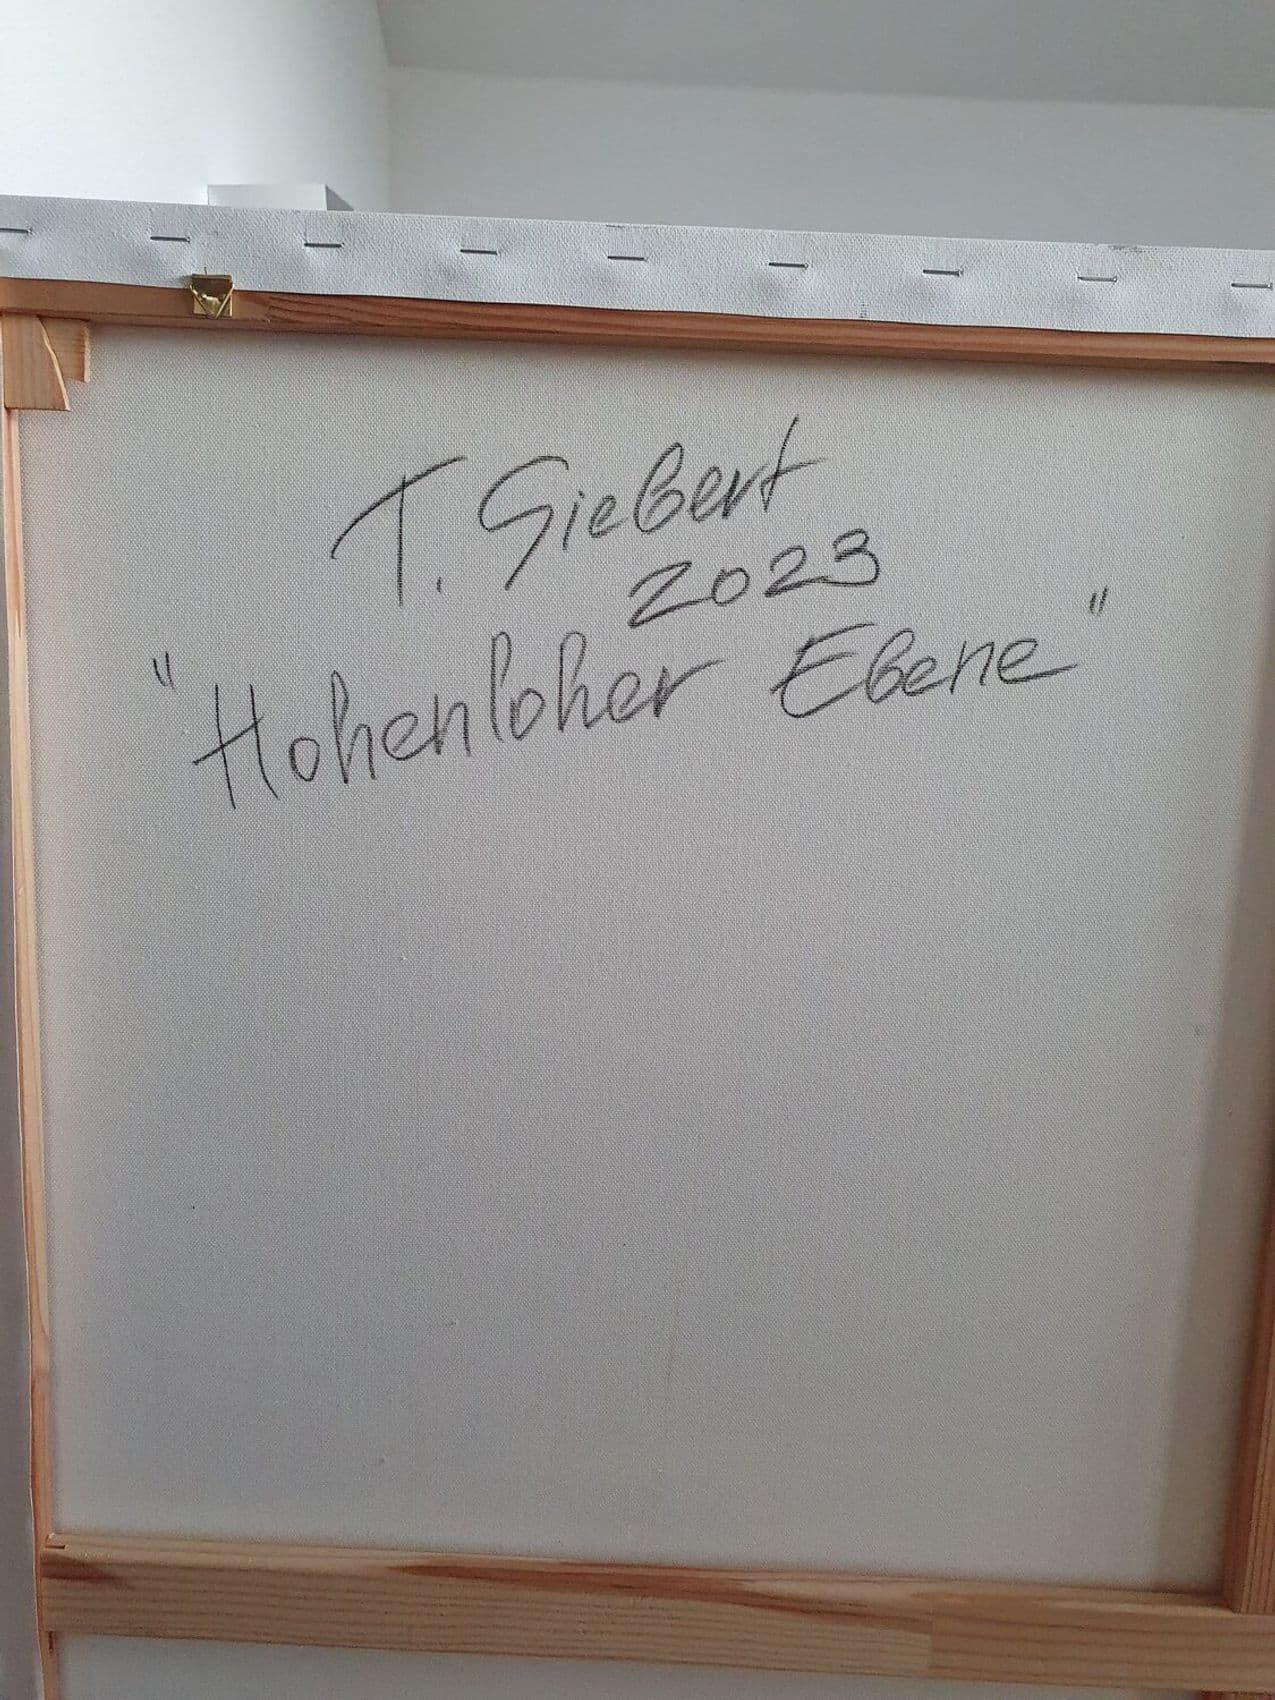 T. Siebert
2023
"Hohenloher Ebene"